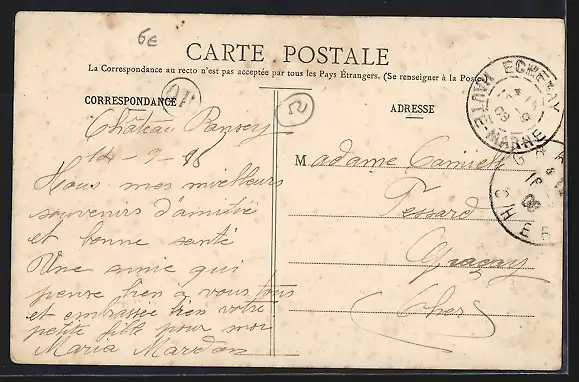 6€
CARTE POSTALE
La Correspondance au recto n'est pas acceptée par tous les Pays Étrangers. (Se renseigner à la Poste)
CORRESPONDANCE
ADRESSE
Château
14-9-
mes meilleurs
souvenirs d'amitié
et bonne santé
Une amie qui
pense bien à vous tous
et embrassée bien votre
petite fille pour moi
Maria
Madame
Tessard
Graçay
Cher
HAUTE-MARNE
CHER